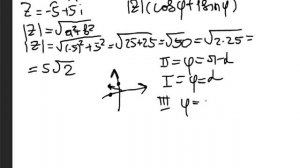 Z = -5+5i |Z|(cosφ+isinφ)
|Z| = √a²+b²
|Z| = √(-5)²+5² = √25+25 = √50 = √2·25 =
= 5√2
II = φ = π-α
I = φ = α
III φ =